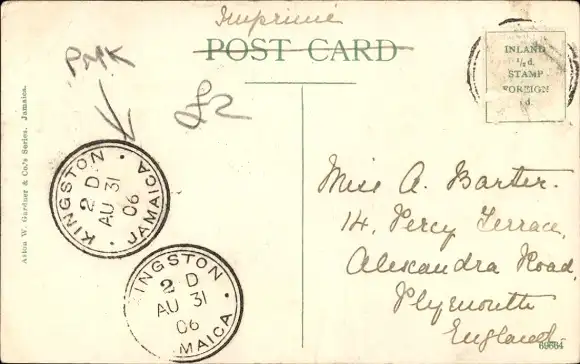 Imprimé
POST CARD
PMK
£2
INLAND
½d.
STAMP
FOREIGN
d.
Aston W. Gardner & Co.'s Series. Jamaica.
KINGSTON · JAMAICA ·
2 D
AU 31
06
KINGSTON
2 D
AU 31
06
MAICA ·
Miss A. Barter.
14, Percy Terrace,
Alexandra Road,
Plymouth
England.